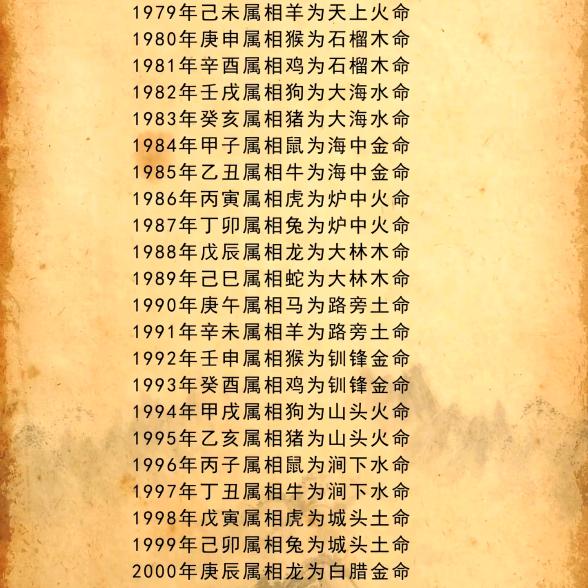 1979年己未属相羊为天上火命
1980年庚申属相猴为石榴木命
1981年辛酉属相鸡为石榴木命
1982年壬戌属相狗为大海水命
1983年癸亥属相猪为大海水命
1984年甲子属相鼠为海中金命
1985年乙丑属相牛为海中金命
1986年丙寅属相虎为炉中火命
1987年丁卯属相兔为炉中火命
1988年戊辰属相龙为大林木命
1989年己巳属相蛇为大林木命
1990年庚午属相马为路旁土命
1991年辛未属相羊为路旁土命
1992年壬申属相猴为钏锋金命
1993年癸酉属相鸡为钏锋金命
1994年甲戌属相狗为山头火命
1995年乙亥属相猪为山头火命
1996年丙子属相鼠为涧下水命
1997年丁丑属相牛为涧下水命
1998年戊寅属相虎为城头土命
1999年己卯属相兔为城头土命
2000年庚辰属相龙为白腊金命